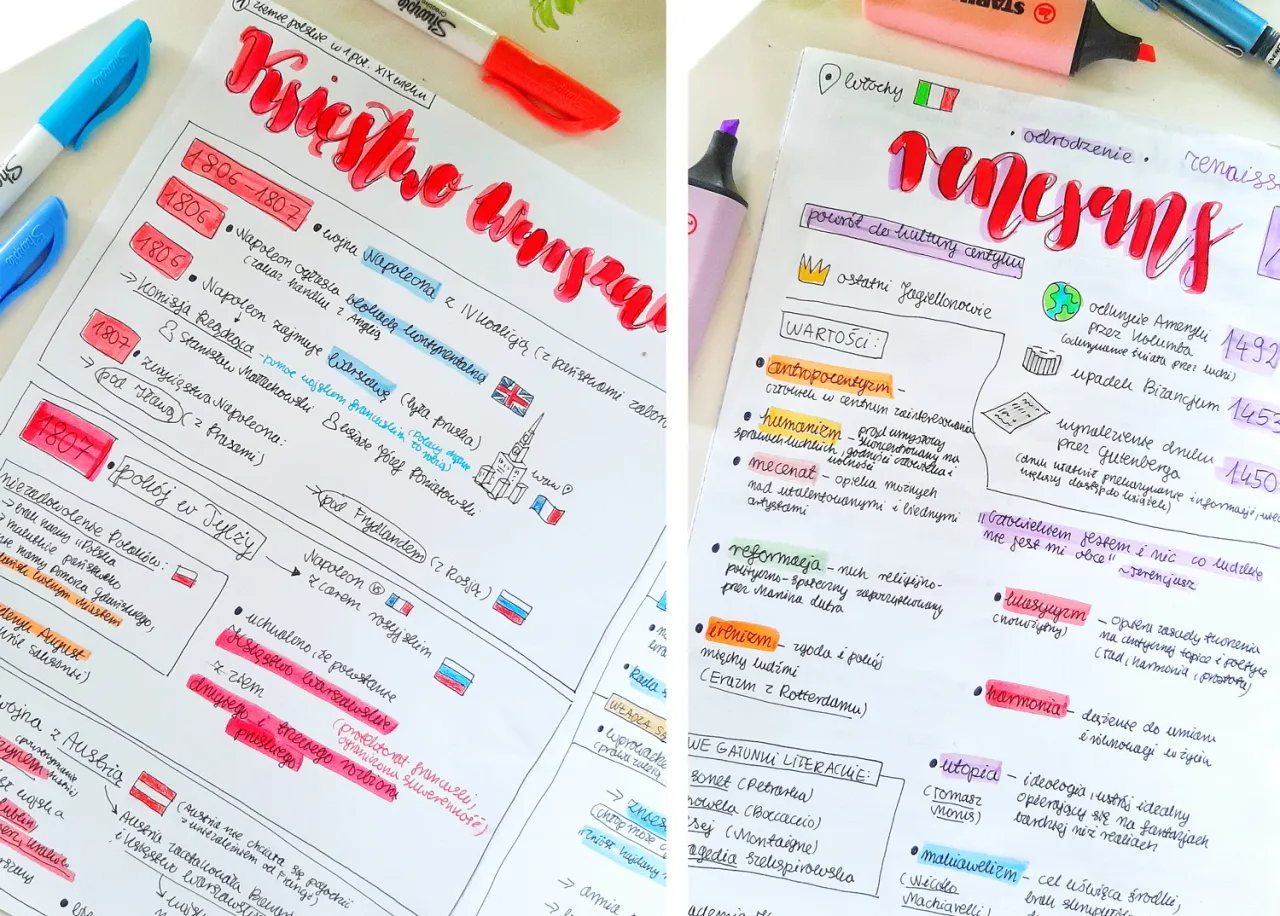 ziemie polskie w 1 poł. XIX wieku
Księstwo Warszaw
1806-1807
• wojna Napoleona z IV koalicją (z państwami zabor
1806
• Napoleon ogłasza blokadę kontynentalną
(zakaz handlu z Anglią
1806
• Napoleon zajmuje Warszawę (była pruska)
→ Komisja Rządząca - pomoc wojskom francuskim
Stanisław Małachowski
książę Józef Poniatowski
w-wa
1807
• zwycięstwa Napoleona:
→ pod Iławą (z Prusami)
→ pod Frydlandem (z Rosją)
1807
• pokój w Tylży
Napoleon
z carem rosyjskim
niezadowolenie Polaków:
→ brak nazwy "Polska
malutkie państwo
mamy Pomorza gdańskiego,
Wolnym Miastem
August
• uchwalono, że powstanie
Księstwo Warszawskie
(protektorat francuski,
ograniczona suwerenność)
z ziem
drugiego i trzeciego rozbioru
pruskiego
wojna z Austrią
(Austria nie chciała się pogodzić
z uzależnieniem od Francji)
Austria zaatakowała
i Księstwo Warszaws
Lublin
Rada s
WŁADZA
• wprowadz
→ armia
Sharpie
STABI
włochy
• odrodzenie •
renaiss
renesans
powrót do kultury antyku
ostatni Jagiellonowie
odkrycie Ameryki
przez Kolumba
1492
upadek Bizancjum
1453
wynalezienie druku
przez Gutenberga
1450
WARTOŚCI:
• antropocentyzm -
człowiek w centrum zainteresowania
• humanizm - prąd umysłowy
skoncentrowany na
sprawach ludzkich, godności człowieka i
wolności
• mecenat - opieka możnych
nad utalentowanymi i biednymi
artystami
"Człowiekiem jestem i nic co ludzkie
nie jest mi obce"
~Terencjusz
• reformacja - ruch religijno-
polityczno-społeczny zapoczątkowany
przez Marcina Lutra
• klasycyzm -
(nowożytny)
opiera zasady tworzenia
na antycznej topice i poetyce
(ład, harmonia, prostota)
• irenizm - zgoda i pokój
między ludźmi
(Erazm z Rotterdamu)
• harmonia - dążenie do umiaru
i równowagi w życiu
WE GATUNKI LITERACKIE:
sonet (Petrarka)
nowela (Boccaccio)
esej (Montaigne)
tragedia szekspirowska
• utopia - ideologia, ustrój idealny
(Tomasz
Morus)
opierający się na fantazjach
bardziej niż realiach
• makiawelizm - cel uświęca środki,
(Niccolo
Machiavelli)
brak skrupułów